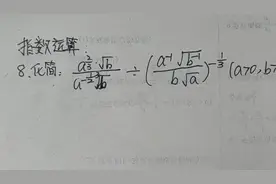 指数运算
8.化简: \frac{a^{\frac{2}{3}}\sqrt{b}}{a^{-\frac{1}{2}}\sqrt[3]{b}} ÷ \left(\frac{a^{-1}\sqrt{b^{-1}}}{b\sqrt{a}}\right)^{-\frac{1}{3}} (a>0,b>